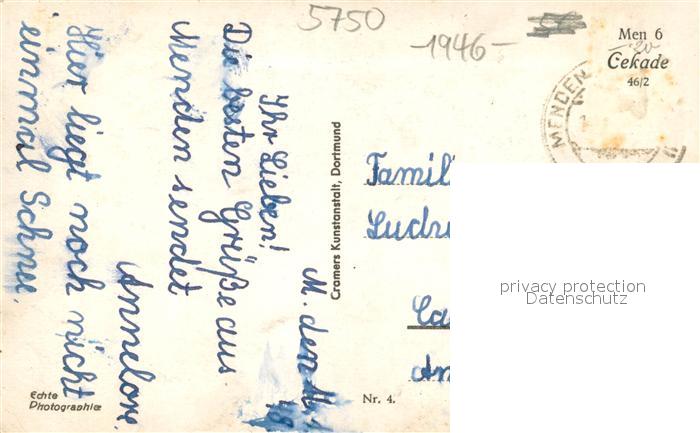 5750
-1946-
Men 6
Cekade
46/2
MENDEN
M. den
Ihr Lieben!
Die besten Grüße aus
Menden sendet
Annelore.
Hier liegt noch nicht
einmal Schnee.
Cramers Kunstanstalt, Dortmund
Famil
Ludw
Ca
An
privacy protection
Datenschutz
Echte
Photographie
Nr. 4.